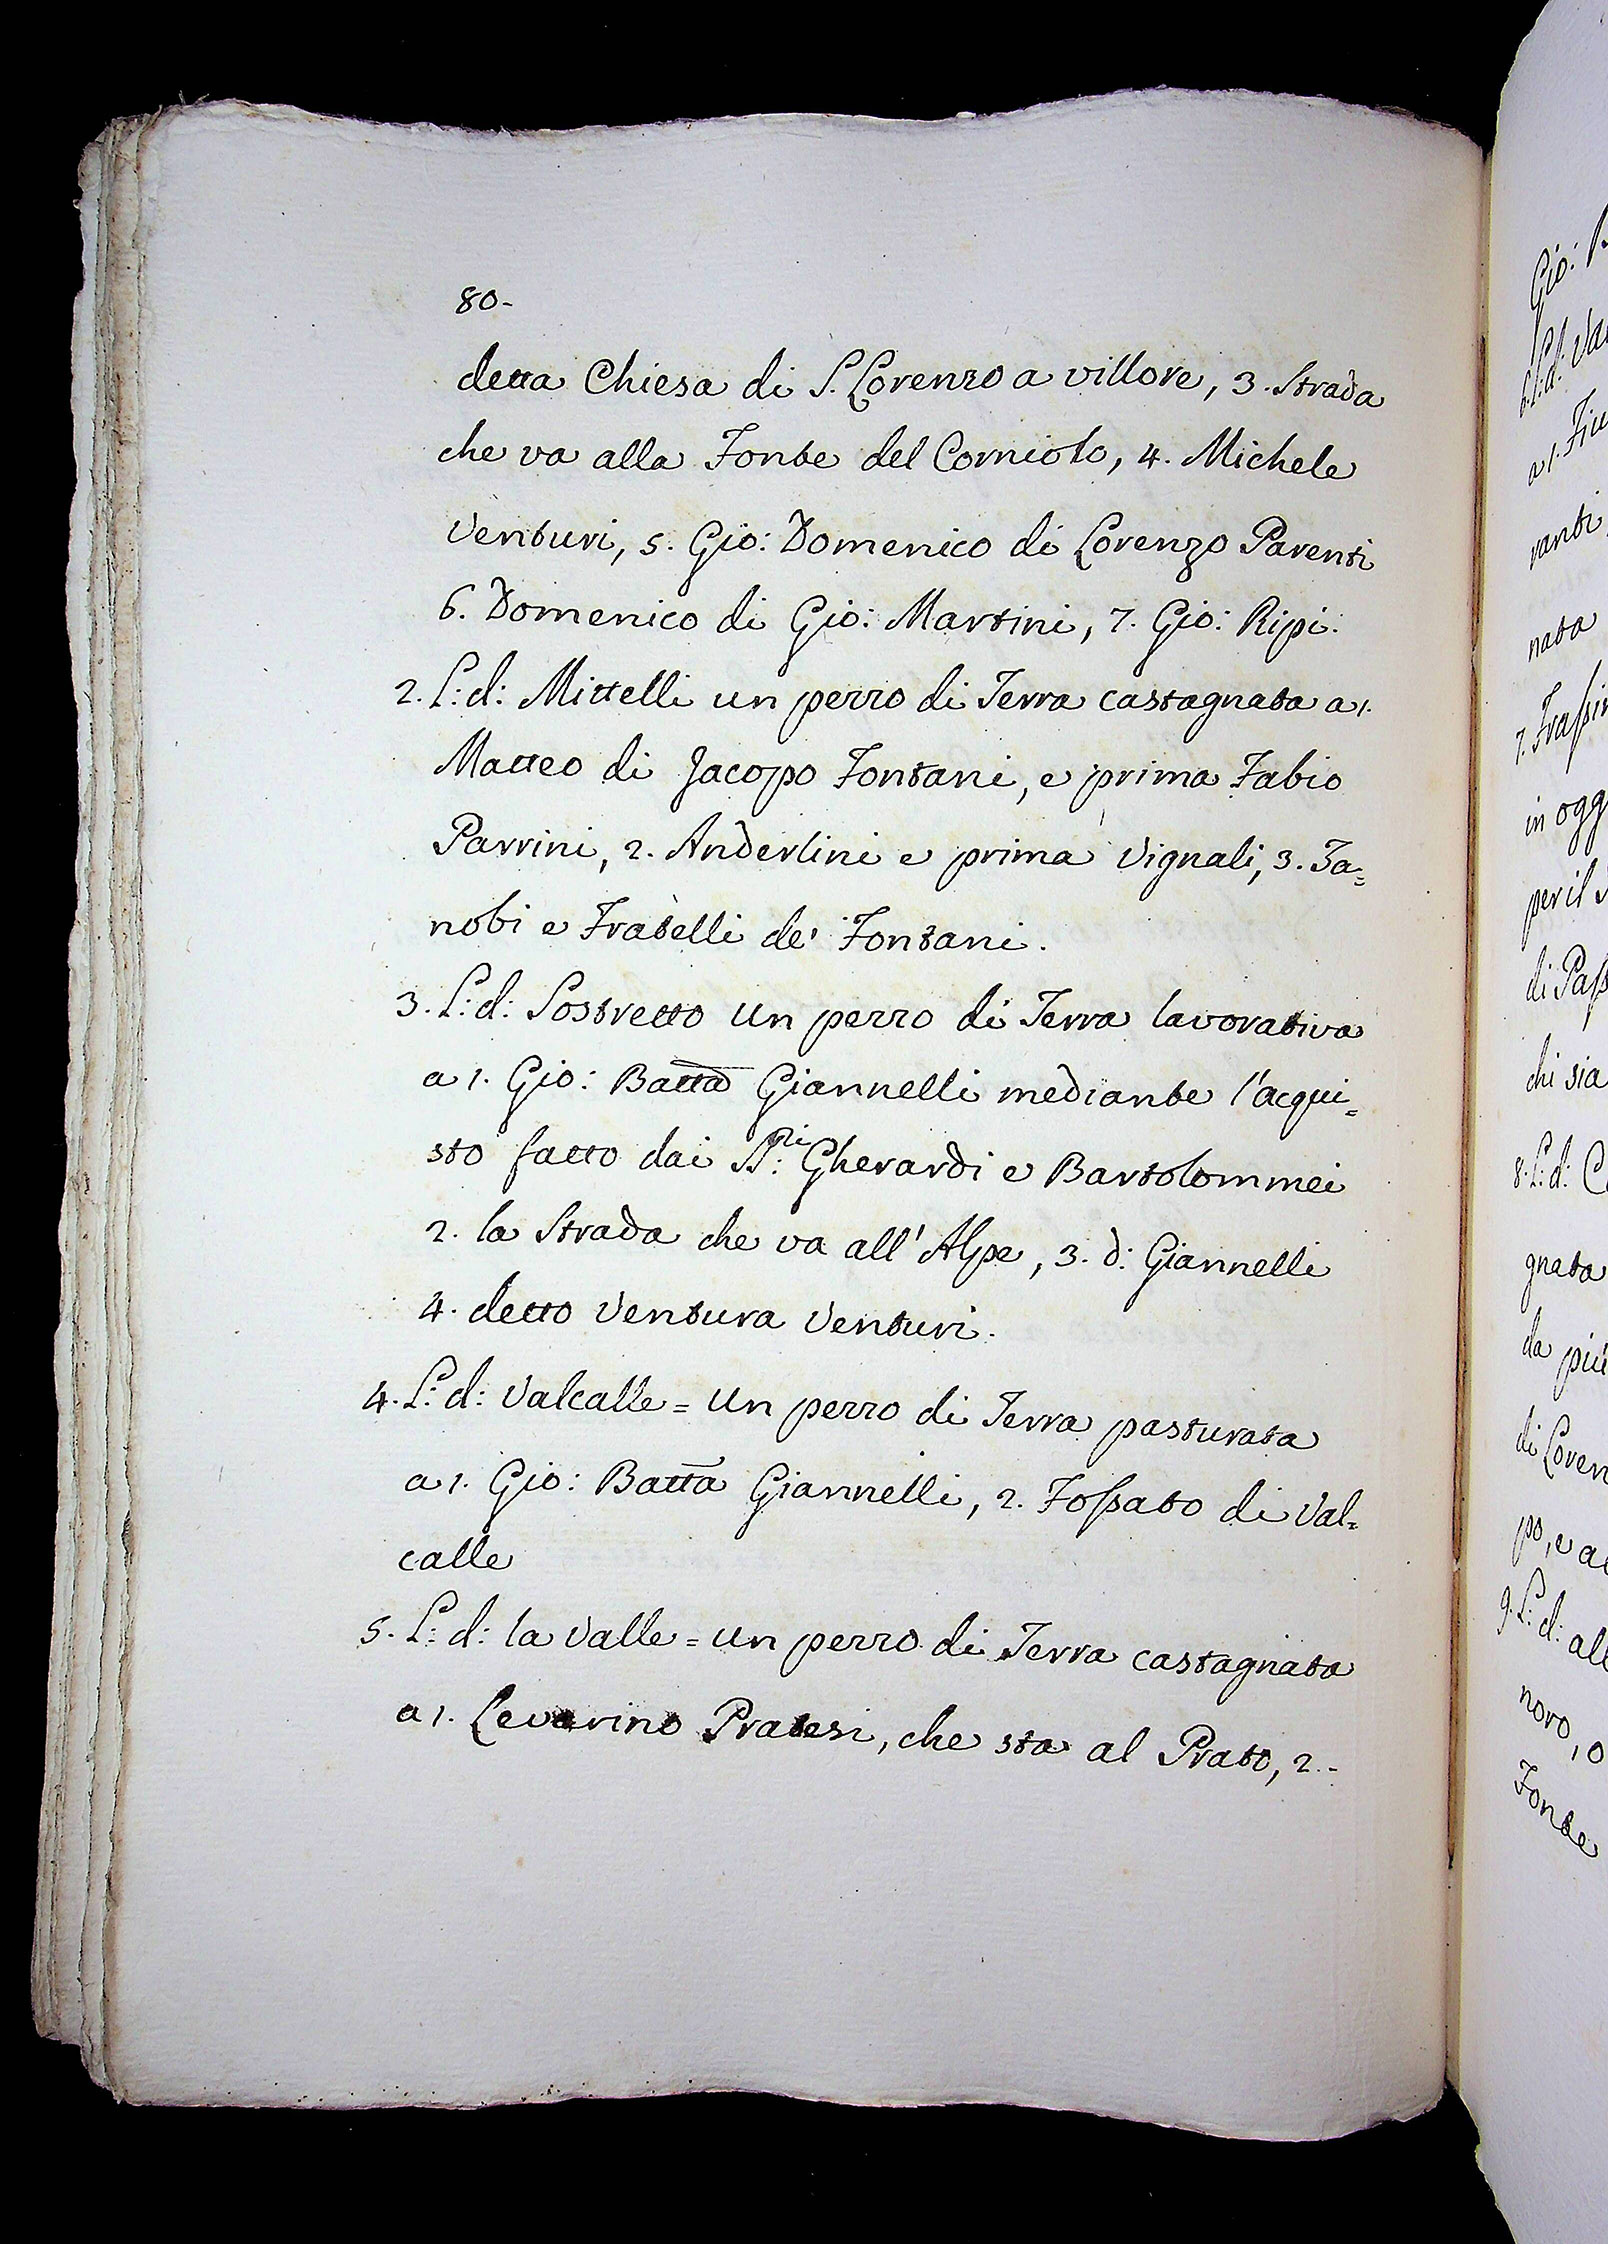 80-
detta Chiesa di S. Lorenzo a villore, 3. Strada
che va alla Fonte del Corniolo, 4. Michele
Venturi, 5. Gio: Domenico di Lorenzo Parenti
6. Domenico di Gio: Martini, 7. Gio: Ripi.
2. L: d: Mittelli un pezzo di Terra castagnata a 1.
Matteo di Jacopo Fontani, e prima Fabio
Parrini, 2. Anderlini e prima Vignali, 3. Za=
nobi e Fratelli de' Fontani.
3. L: d: Sostretto un pezzo di Terra lavorativa
a 1. Gio: Batta Giannelli mediante l'acqui=
sto fatto dai SS:ri Gherardi e Bartolommei
2. la Strada che va all'Alpe, 3. d: Giannelli
4. detto Ventura Venturi.
4. L: d: Valcalle = un pezzo di Terra pasturata
a 1. Gio: Batta Giannelli, 2. Fossato di Val=
calle
5. L: d: la Valle = un pezzo di Terra castagnata
a 1. Pratesi, che sta al Prato, 2.-
Gio:
6. L: d:
a 1.
ranti
nata
7.
in
per il
di
chi sia
8. L: d:
gnata
da più
di
po, e
9. L: d:
Fonte